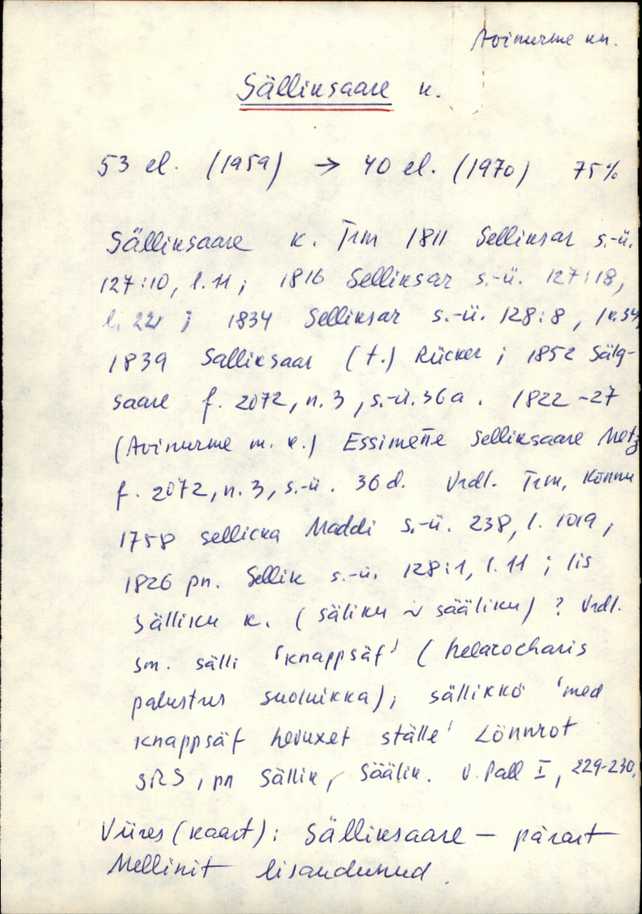 Avinurme kn.
Sälliksaare k.
53 el. (1959) → 40 el. (1970) 75%
Sälliksaare k. Trm 1811 Selliksar s.-ü.
127:10, l. 11; 1816 Selliksar s.-ü. 127:18,
l. 221; 1834 Selliksar s.-ü. 128:8,
1839 Salliksaar (t.) Rücker; 1852 Sälg-
saare f. 2072, n. 3, s.-ü. 36a. 1822-27
(Avinurme m. k.) Essimenne Selliksaare Metz
f. 2072, n. 3, s.-ü. 36d. Vrdl. Trm, Kõnnu
1758 Sellicka Maddi s.-ü. 238, l. 1019,
1826 pn. Sellik s.-ü. 128:1, l. 11; Iis
Sälliku k. (säliku ~ sääliku) ? Vrdl.
sm. sälli 'knappsäf' (helarocharis
palustrus suoluikka); sällikkö 'med
knappsäf bevuxet ställe' Lönnrot
SRS, pn Sällik, Säälik. V. Pall I, 229-230.
Viires (kaart): Sälliksaare – pärast
Mellinit lisandunud.